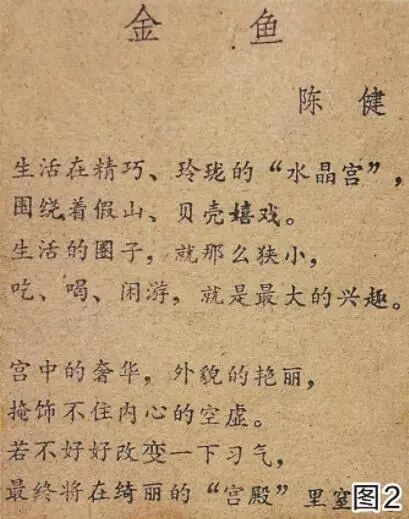 金 鱼
陈 健
生活在精巧、玲珑的“水晶宫”，
围绕着假山、贝壳嬉戏。
生活的圈子，就那么狭小，
吃、喝、闲游，就是最大的兴趣。
宫中的奢华，外貌的艳丽，
掩饰不住内心的空虚。
若不好好改变一下习气，
最终将在绮丽的“宫殿”里窒
图2